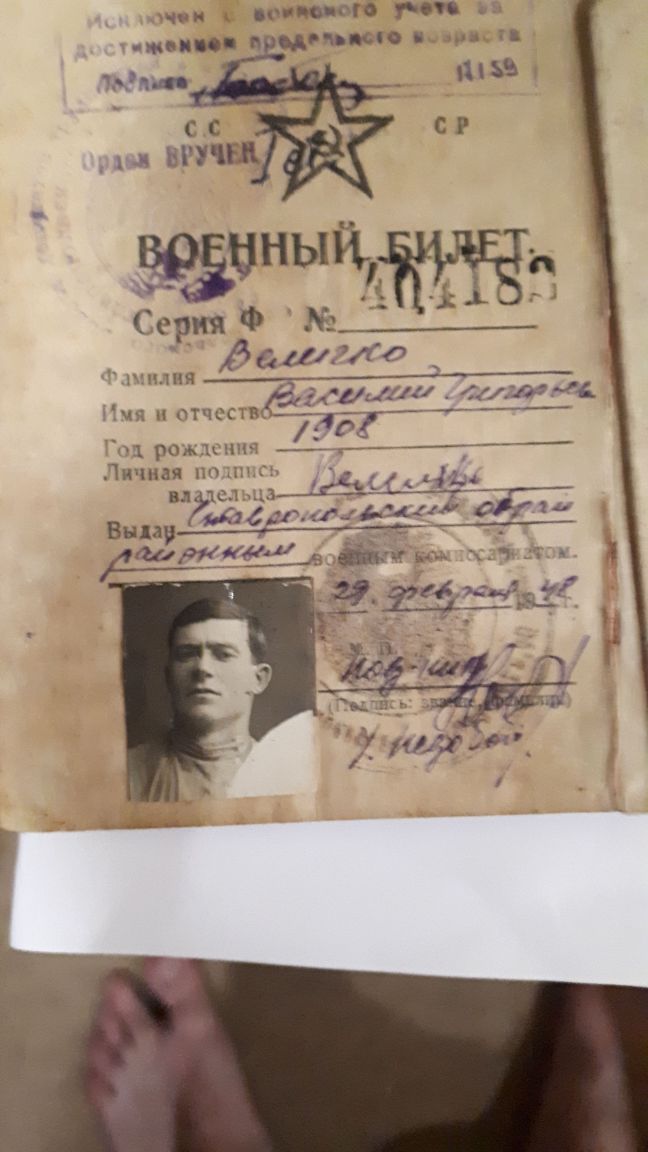 Исключен с воинского учета за
достижением предельного возраста
Подпись 12.1.59
СС СР
Орден ВРУЧЕН
ВОЕННЫЙ БИЛЕТ
Серия Ф № 404183
Фамилия Величко
Имя и отчество Василий Григорьев
Год рождения 1908
Личная подпись
владельца
Выдан Ставропольским
районным военным комиссариатом.
29 февраля 1948 г.
М. П.
(Подпись: звание, фамилия)